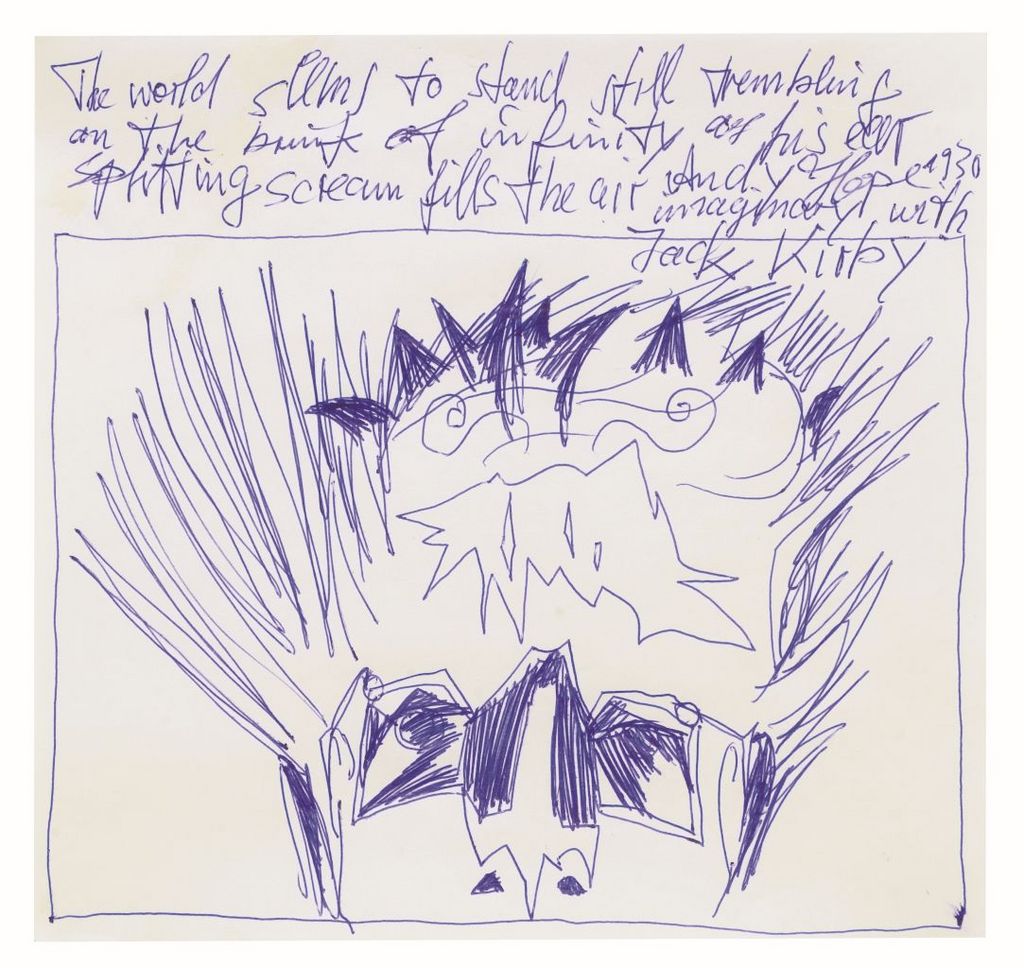 The world seems to stand still trembling
on the brink of infinity as his ear
splitting scream fills the air Andy Hope 1930
imaginary with
Jack Kirby